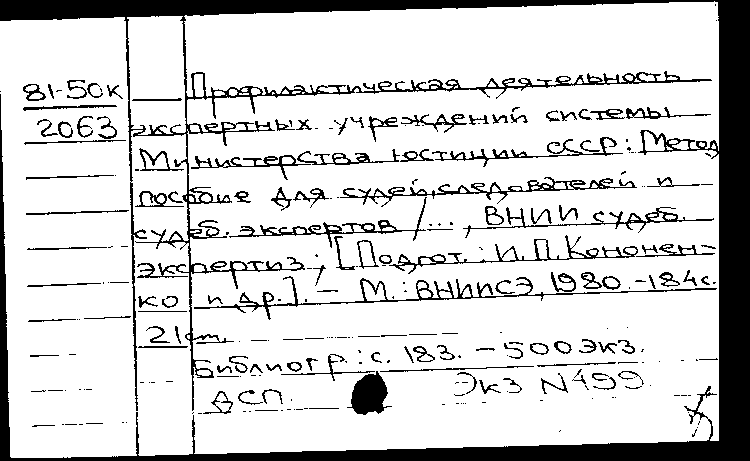 81-50к Профилактическая деятельность
2063 экспертных учреждений системы
Министерства юстиции СССР: Метод
пособие для судей, следователей и
судеб. экспертов /..., ВНИИ судеб.
экспертиз; [Подгот.: И.П.Кононен-
ко и др.]. - М.: ВНИИСЭ, 1980. - 184с.
21см.
Библиогр: с. 183. - 500экз.
ДСП. Экз N499